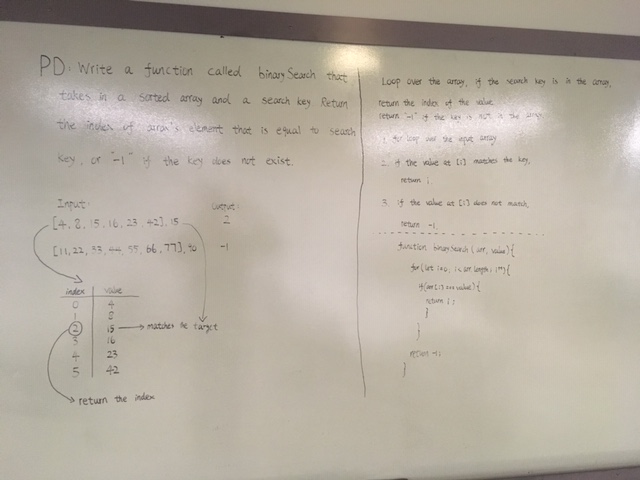 PD: Write a function called binarySearch that
takes in a sorted array and a search key. Return
the index of array's element that is equal to search
key, or "-1" if the key does not exist.
Input:
Output:
[4, 8, 15, 16, 23, 42], 15
2
[11, 22, 33, 44, 55, 66, 77], 90
-1
index value
0 4
1 8
2 15 → matches the target
3 16
4 23
5 42
return the index
Loop over the array, if the search key is in the array,
return the index of the value
return "-1" if the key is not in the array
1. for loop over the input array
2. if the value at [i] matches the key,
return i
3. if the value at [i] does not match,
return -1.
function binarySearch (arr, value) {
for (let i=0; i < arr.length; i++) {
if (arr[i] === value) {
return i;
}
}
return -1;
}